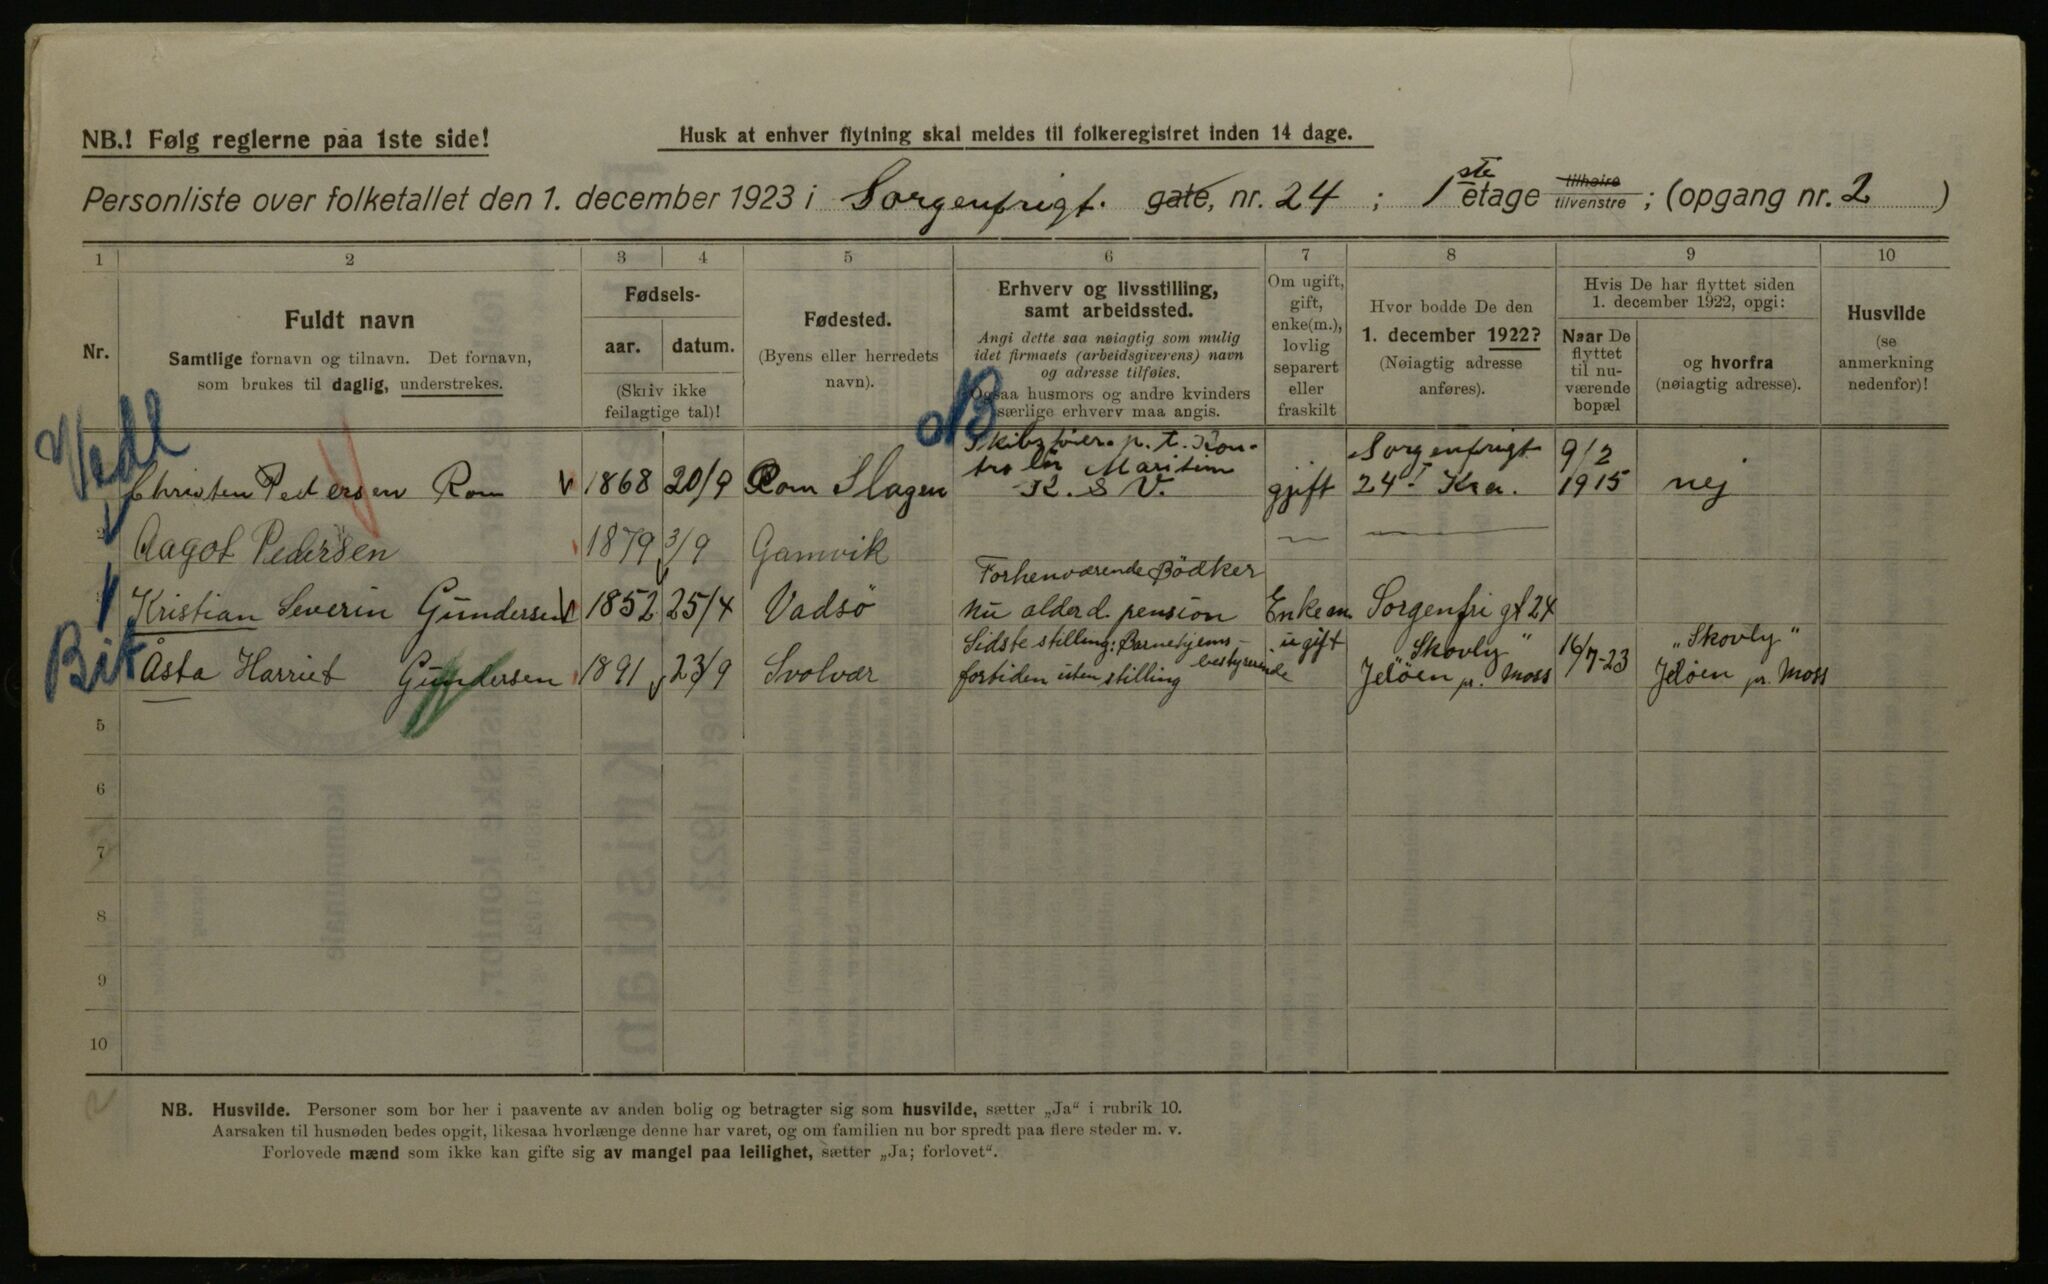 NB.! Følg reglerne paa 1ste side!
Husk at enhver flytning skal meldes til folkeregistret inden 14 dage.
Personliste over folketallet den 1. december 1923 i Sorgenfrigt. gate, nr. 24 ; 1ste etage tilhøire tilvenstre ; (opgang nr. 2 )
1 2 3 4 5 6 7 8 9 10
Nr.
Fuldt navn
Samtlige fornavn og tilnavn. Det fornavn,
som brukes til daglig, understrekes.
Fødsels-
aar. datum.
(Skriv ikke
feilagtige tal)!
Fødested.
(Byens eller herredets
navn).
Erhverv og livsstilling,
samt arbeidssted.
Angi dette saa nøiagtig som mulig
idet firmaets (arbeidsgiverens) navn
og adresse tilføies.
Ogsaa husmors og andre kvinders
særlige erhverv maa angis.
Om ugift,
gift,
enke(m.),
lovlig
separert
eller
fraskilt
Hvor bodde De den
1. december 1922?
(Nøiagtig adresse
anføres).
Hvis De har flyttet siden
1. december 1922, opgi:
Naar De
flyttet
til nu-
værende
bopæl
og hvorfra
(nøiagtig adresse).
Husvilde
(se
anmerkning
nedenfor)!
Vedl
B
Skibsfører p. t. Kon-
Christen Pedersen Rom 1868 20/9 Rom Slagen trolör Maritim K. S V. gift Sorgenfrigt 24 I Kra. 9/2 1915 nej
2 Aagot Pedersen 1879 3/9 Gamvik
Forhenværende Bödker
Kristian Severin Gundersen 1852 25/4 Vadsö nu alderd. pension Enkem Sorgenfri gt 24
Bik
Sidste stilling: Barnehjems-bestyrerinde
Åsta Harriet Gundersen 1891 23/9 Svolvær fortiden uten stilling ugift "Skovly" Jeløen pr. Moss 16/7-23 "Skovly" Jeløen pr. Moss
5
6
7
8
9
10
NB. Husvilde. Personer som bor her i paavente av anden bolig og betragter sig som husvilde, sætter „Ja“ i rubrik 10.
Aarsaken til husnøden bedes opgit, likesaa hvorlænge denne har varet, og om familien nu bor spredt paa flere steder m. v.
Forlovede mænd som ikke kan gifte sig av mangel paa leilighet, sætter „Ja; forlovet“.